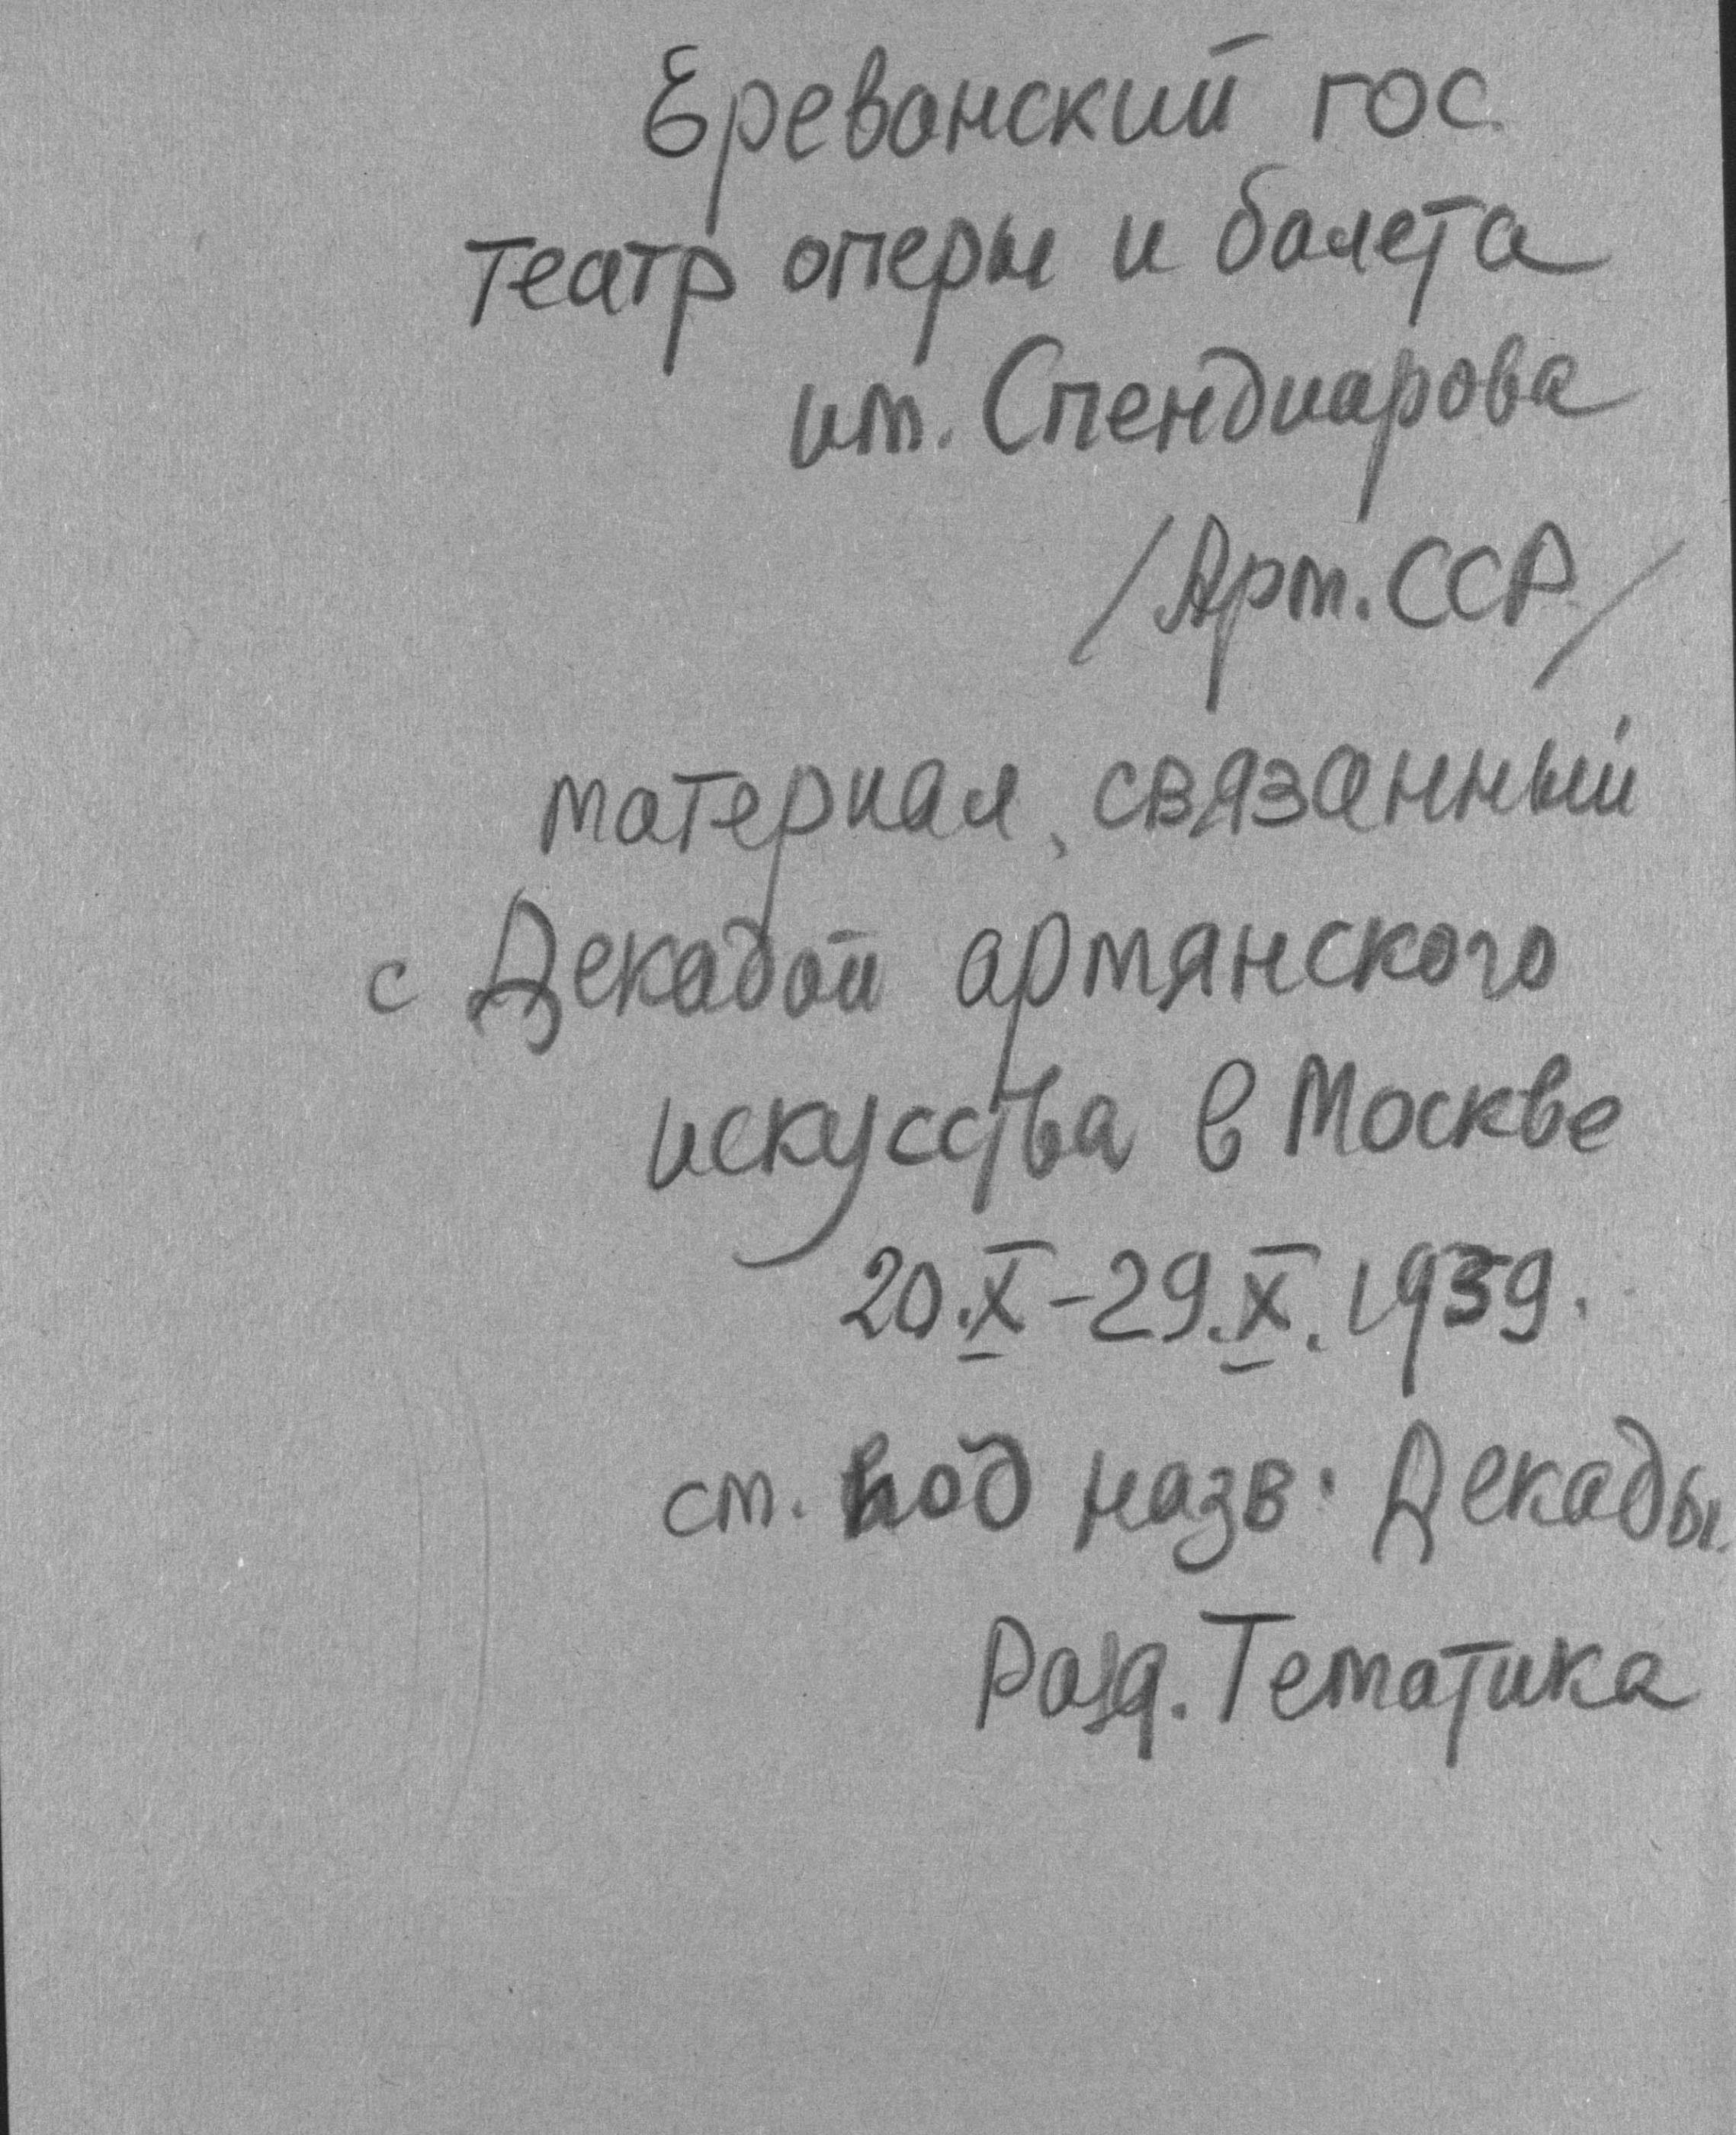 Ереванский гос.
театр оперы и балета
им. Спендиарова
/Арм. ССР/
материал, связанный
с Декадой армянского
искусства в Москве
20.X-29.X.1939.
см. под назв. Декады.
Разд. Тематика